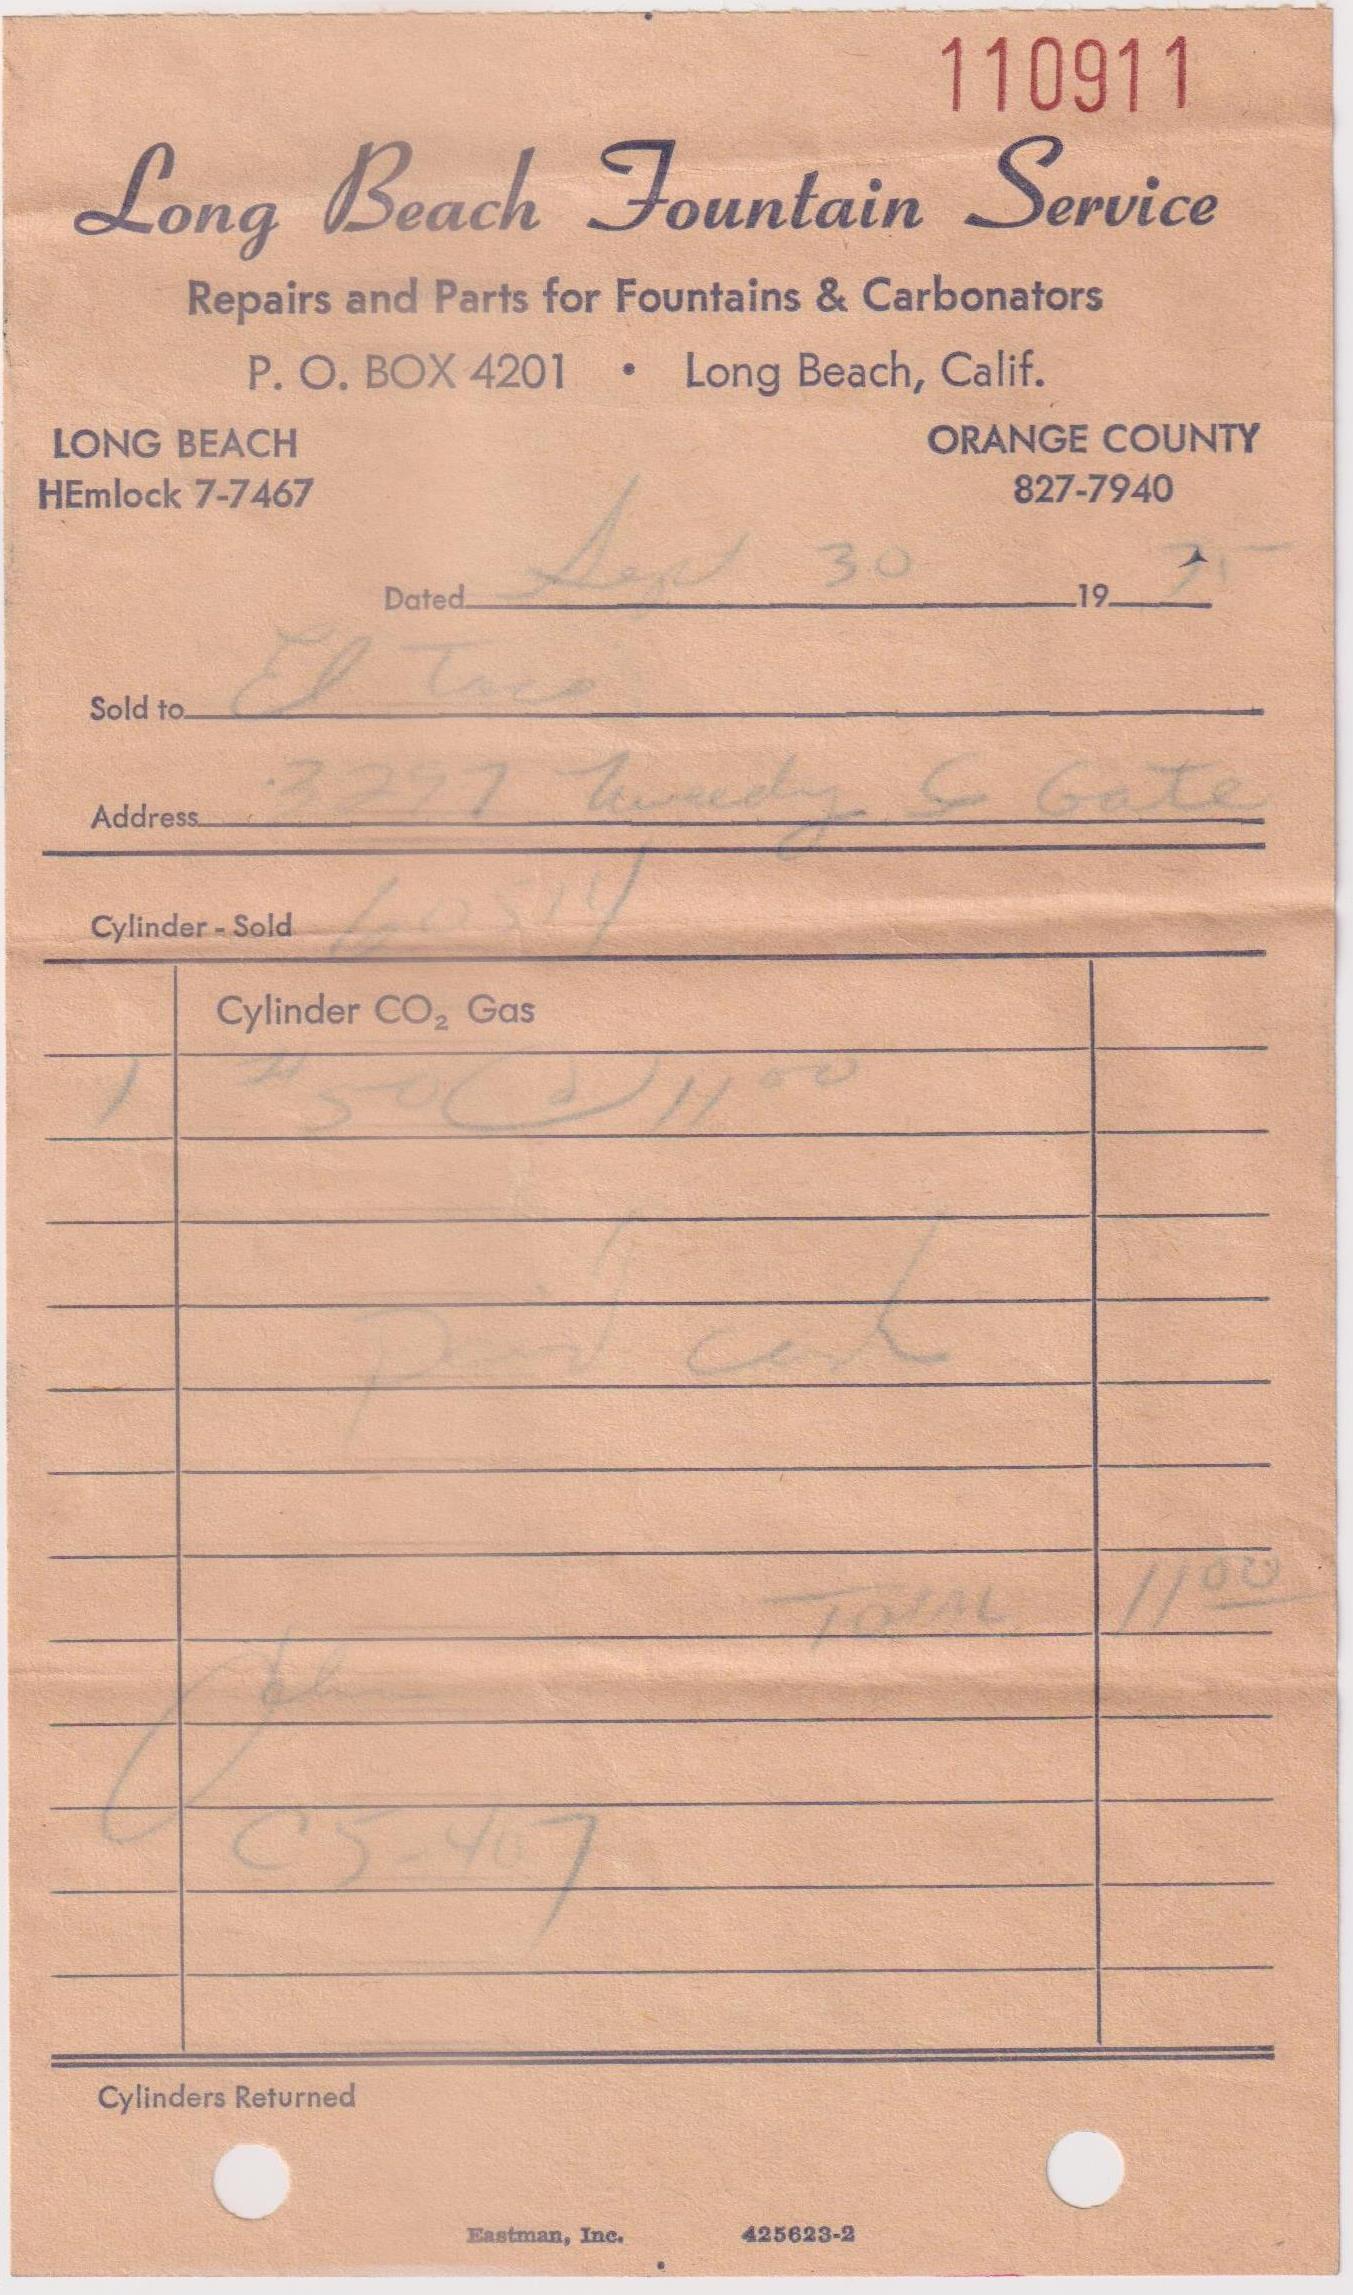 110911
Long Beach Fountain Service
Repairs and Parts for Fountains & Carbonators
P. O. BOX 4201 • Long Beach, Calif.
LONG BEACH ORANGE COUNTY
HEmlock 7-7467 827-7940
Dated Sept 30 1975
Sold to El Taco
Address 3297 Tweedy S Gate
Cylinder - Sold 60514
Cylinder CO₂ Gas
1 # 50 (a) 11 00
Paid cash
TOTAL 11 00
John
C5-407
Cylinders Returned
Eastman, Inc. 425623-2